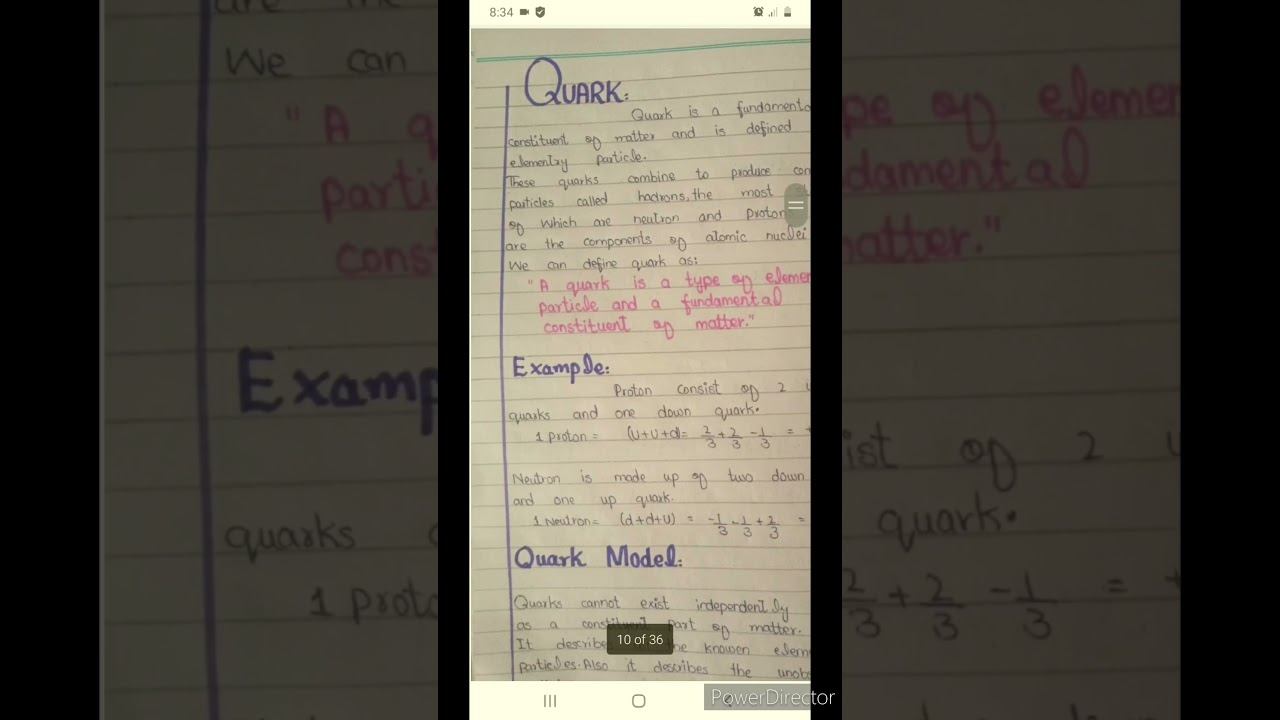 8:34
QUARK:
Quark is a fundamenta
constituent of matter and is defined
elementry particle.
These quarks combine to produce com
particles called hadrons, the most
of which are neutron and Proton
are the components of atomic nuclei
We can define quark as:
"A quark is a type of elemen
particle and a fundamental
constituent of matter."
Example:
Proton consist of 2 u
quarks and one down quark.
1 Proton = (U+U+d)= 2/3 + 2/3 - 1/3 = +
Neutron is made up of two down
and one up quark.
1 Neutron= (d+d+U) = -1/3 - 1/3 + 2/3 =
Quark Model:
Quarks cannot exist independently
as a constituent part of matter.
It describe the knowen elem
Particles. Also it describes the unob
10 of 36
PowerDirector